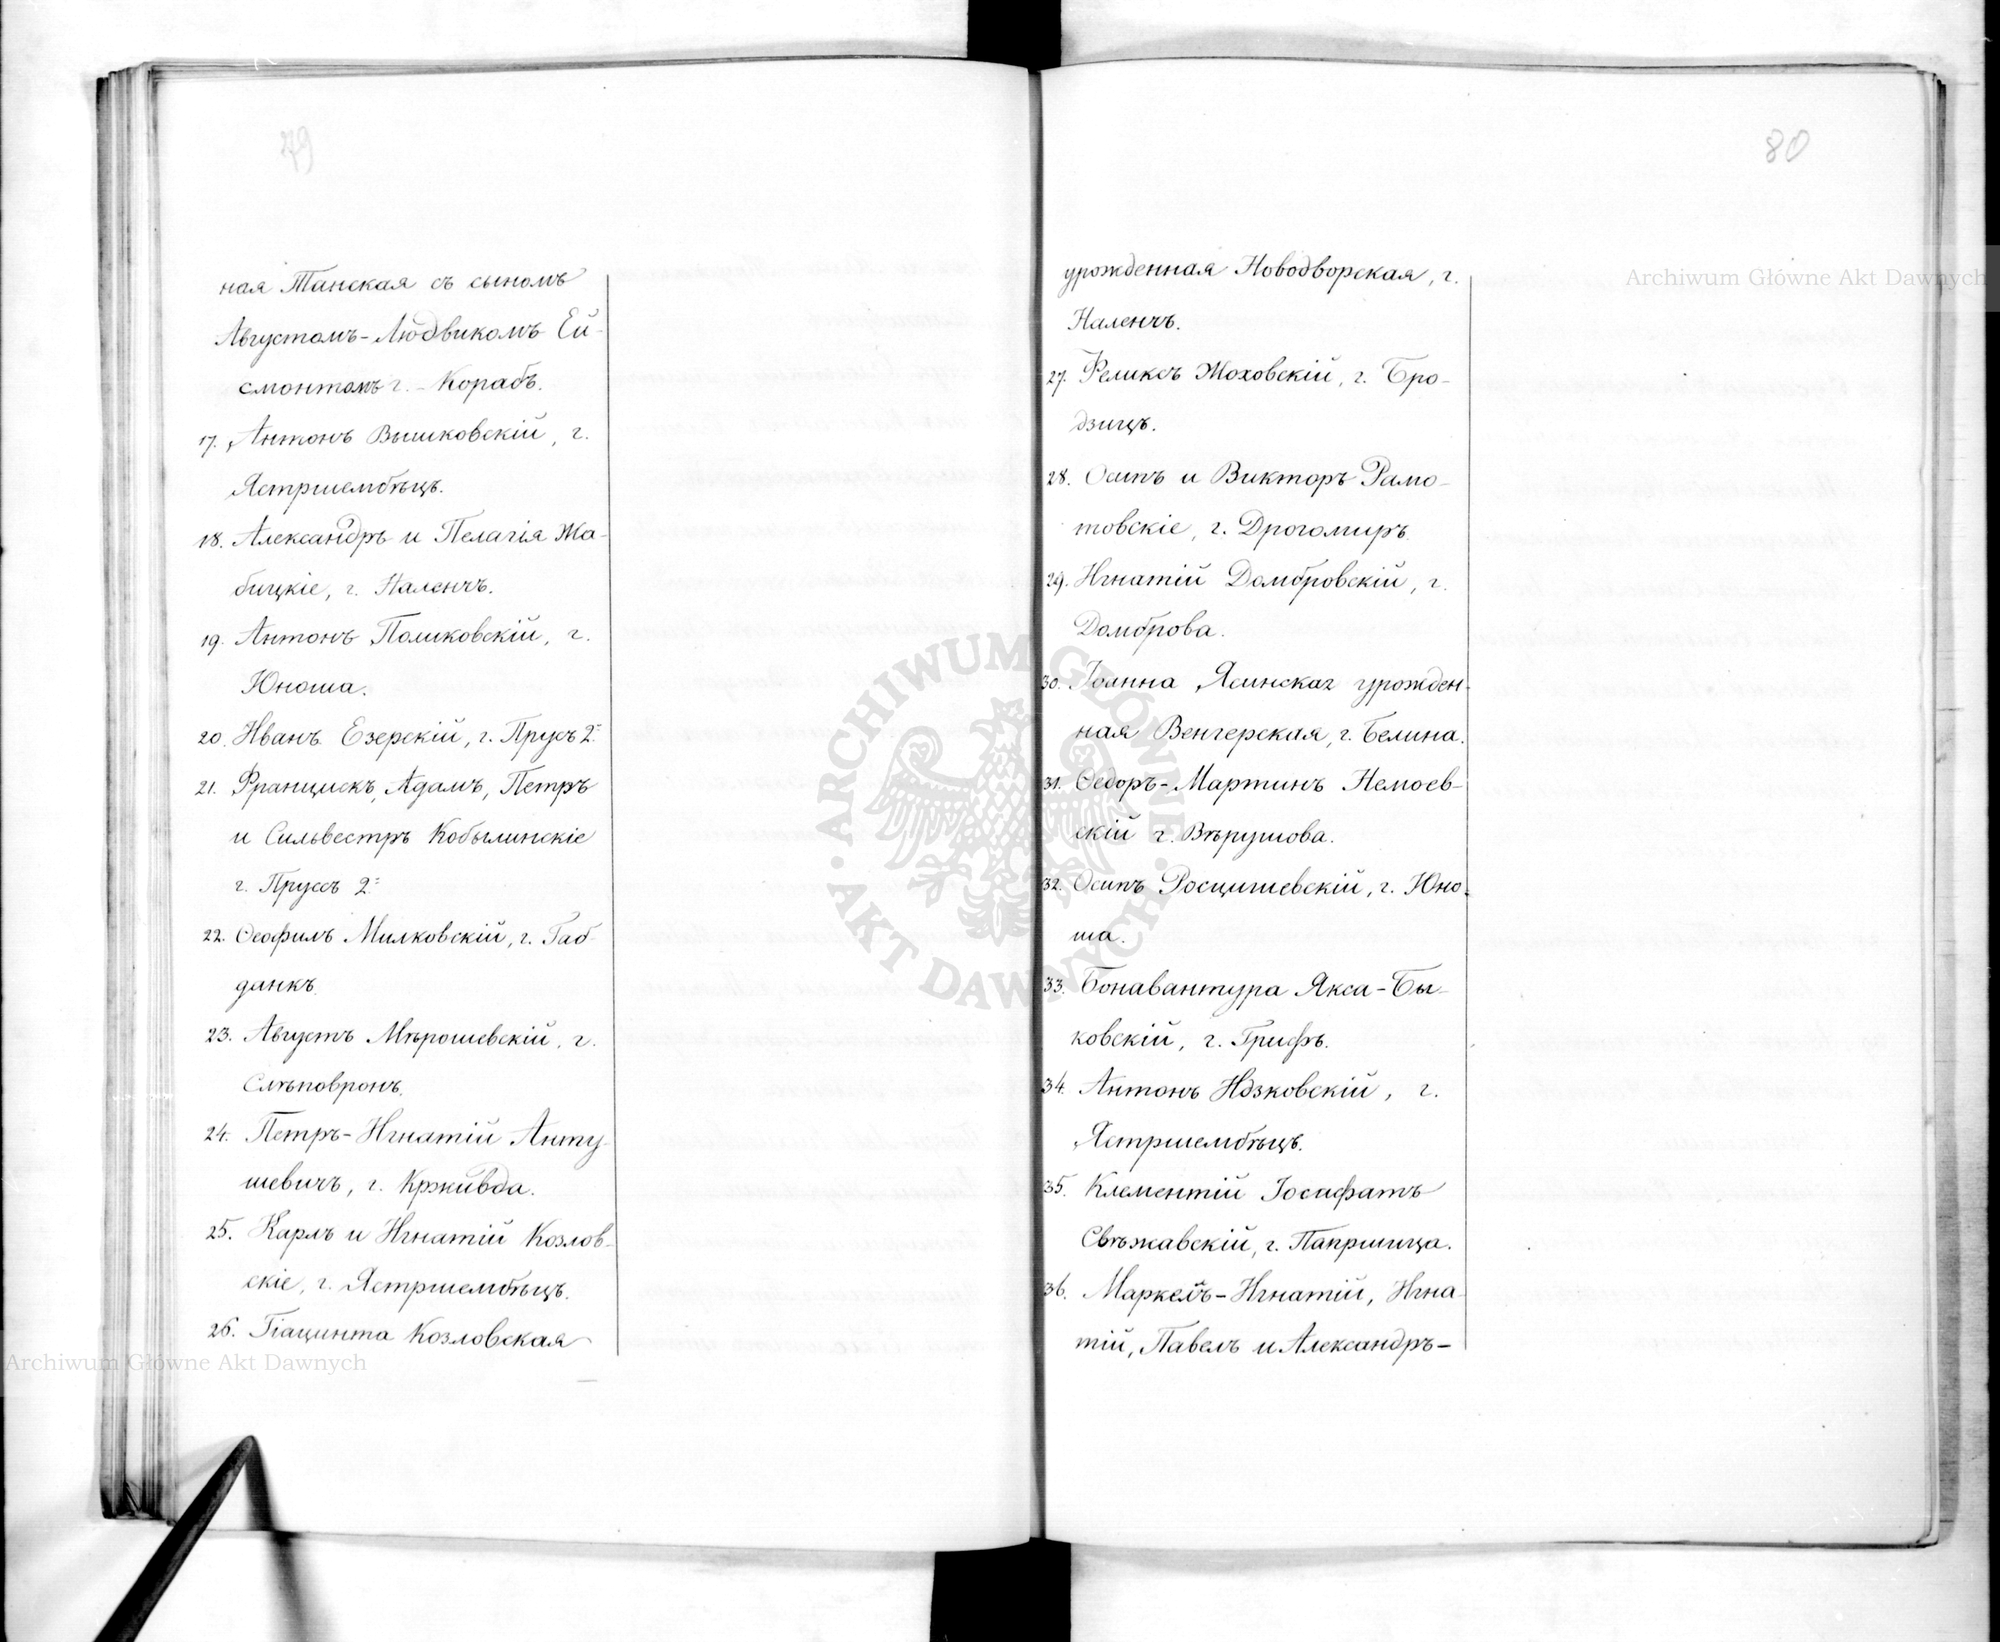 79
ная Танская съ сыномъ
Августомъ-Людвикомъ Ей-
смонтомъ г. Корабъ.
17. Антонъ Вышковскій, г.
Ястршембѣцъ.
18. Александръ и Пелагія Жа-
бицкіе, г. Наленчъ.
19. Антонъ Поликовскій, г.
Юноша.
20. Иванъ Езерскій, г. Прусъ 2.
21. Францискъ, Адамъ, Петръ
и Сильвестръ Кобылинскіе
г. Прусъ 2.
22. Ѳеофилъ Милковскій, г. Габ-
данкъ.
23. Августъ Мѣрошевскій, г.
Слѣповронъ.
24. Петръ-Игнатій Анту-
шевичъ, г. Крживда.
25. Карлъ и Игнатій Козлов-
скіе, г. Ястршембѣцъ.
26. Гіацинта Козловская
80
урожденная Новодворская, г.
Наленчъ.
27. Феликсъ Жоховскій, г. Бро-
дзицъ.
28. Осипъ и Викторъ Рамо-
товскіе, г. Дрогомиръ
29. Игнатій Домбровскій, г.
Домброва.
30. Іоанна Ясинская урожден-
ная Венгерская, г. Белина.
31. Ѳедоръ-Мартинъ Немоев-
скій г. Вѣрушова.
32. Осипъ Росцишевскій, г. Юно-
ша.
33. Бонавантура Якса-Бы-
ковскій, г. Грифъ.
34. Антонъ Идзковскій, г.
Ястршембѣцъ.
35. Клементій Іосафатъ
Свѣжавскій, г. Папршица.
36. Маркелъ-Игнатій, Игна-
тій, Павелъ и Александръ-
Archiwum Główne Akt Dawnych
Archiwum Główne Akt Dawnych
ARCHIWUM GŁÓWNE AKT DAWNYCH